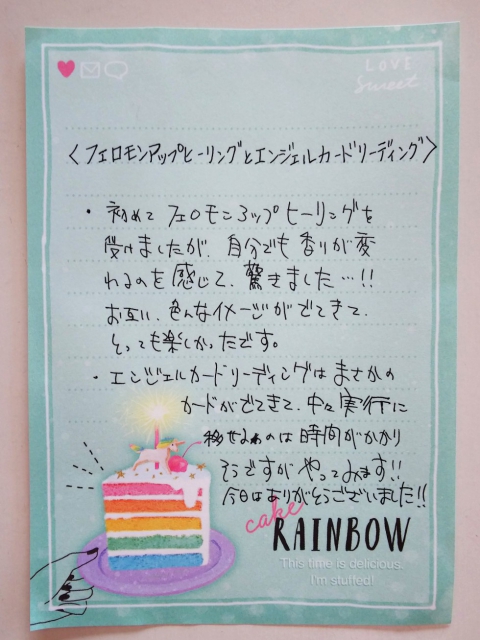 LOVE
Sweet
〈フェロモンアップヒーリングとエンジェルカードリーディング〉
・初めて フェロモンアップヒーリングを
受けましたが、自分でも香りが変
わるのを感じて、驚きました…!!
お互い、色んなイメージがでてきて、
とっても楽しかったです。
・エンジェルカードリーディングはまさかの
カードがでてきて、中々実行に
移せるのは時間がかかり
そうですが やってみます!!
今日はありがとうございました!!
cake
RAINBOW
This time is delicious.
I'm stuffed!